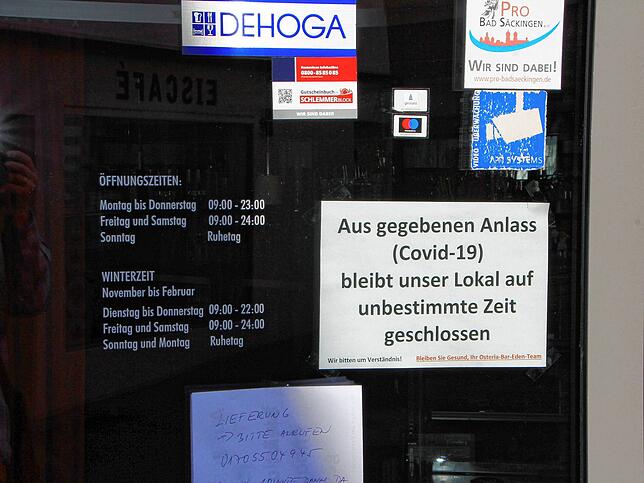 DEHOGA
Kostenlose Infohotline
0800-8585085
Gutscheinbuch
SCHLEMMERBLOCK
WIR SIND DABEI
PRO
BAD SÄCKINGEN
WIR SIND DABEI!
www.pro-badsaeckingen.de
VIDEO-ÜBERWACHUNG
SYSTEMS
EISCAFÉ
ÖFFNUNGSZEITEN:
Montag bis Donnerstag 09:00 - 23:00
Freitag und Samstag 09:00 - 24:00
Sonntag Ruhetag
WINTERZEIT
November bis Februar
Dienstag bis Donnerstag 09:00 - 22:00
Freitag und Samstag 09:00 - 24:00
Sonntag und Montag Ruhetag
Aus gegebenen Anlass
(Covid-19)
bleibt unser Lokal auf
unbestimmte Zeit
geschlossen
Wir bitten um Verständnis! Bleiben Sie Gesund, Ihr Osteria-Bar-Eden-Team
LIEFERUNG
→ BITTE ANRUFEN
DA